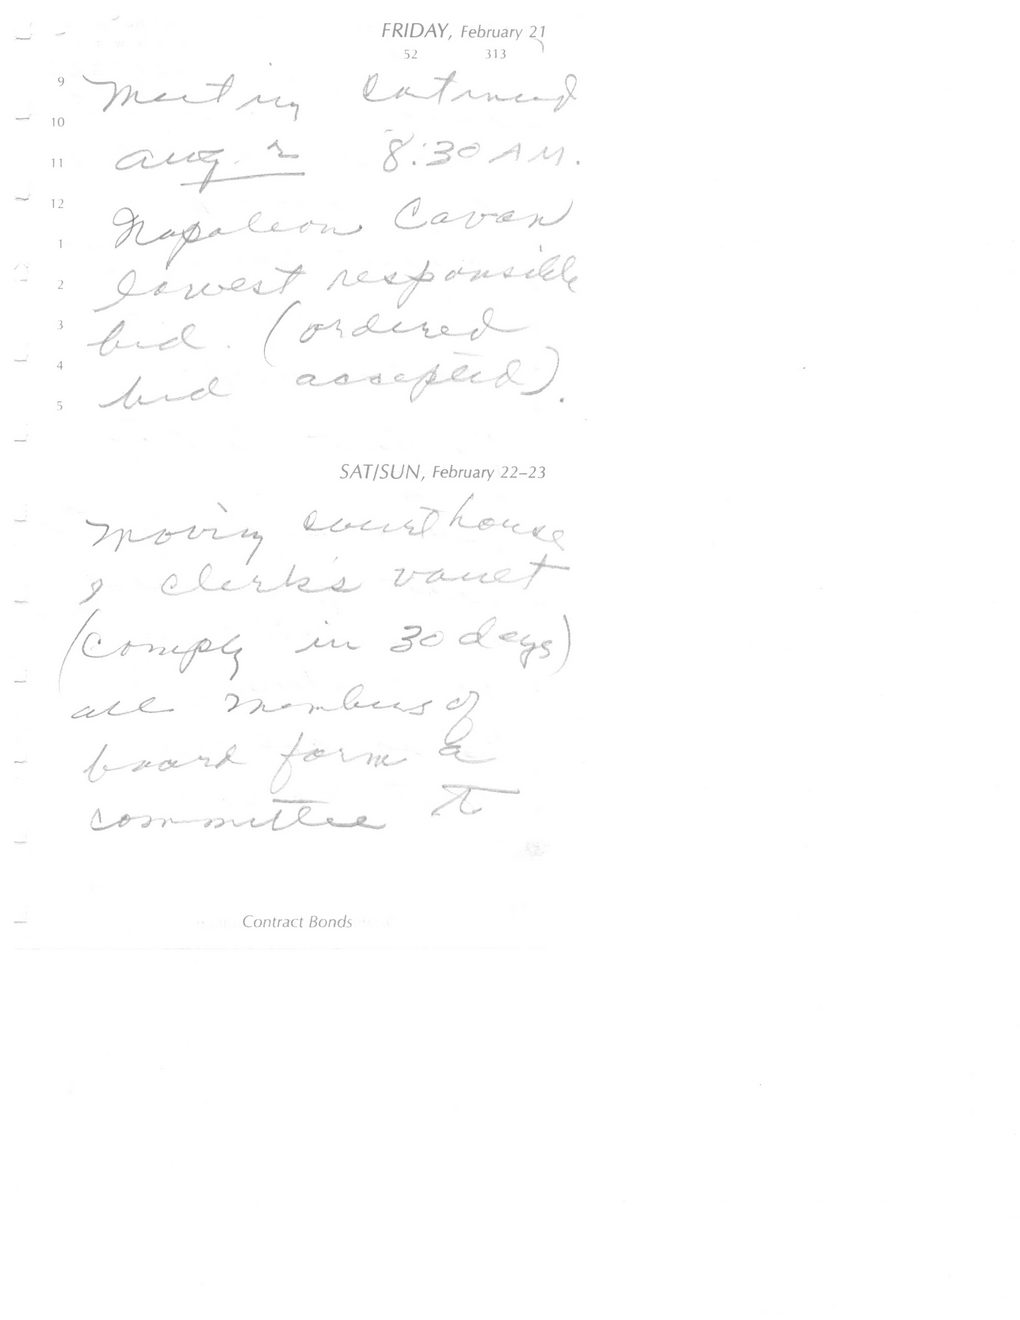 FRIDAY, February 21
52 313
9
Meeting Continued
10
11 Aug. 2 8:30 AM.
12
Napoleon Cavan
1
2 lowest responsible
3 bid. (ordered
4
bid accepted).
5
SAT/SUN, February 22–23
Moving courthouse
& clerk's vault
(Comply in 30 days)
all members of
board form a
committee to
Contract Bonds